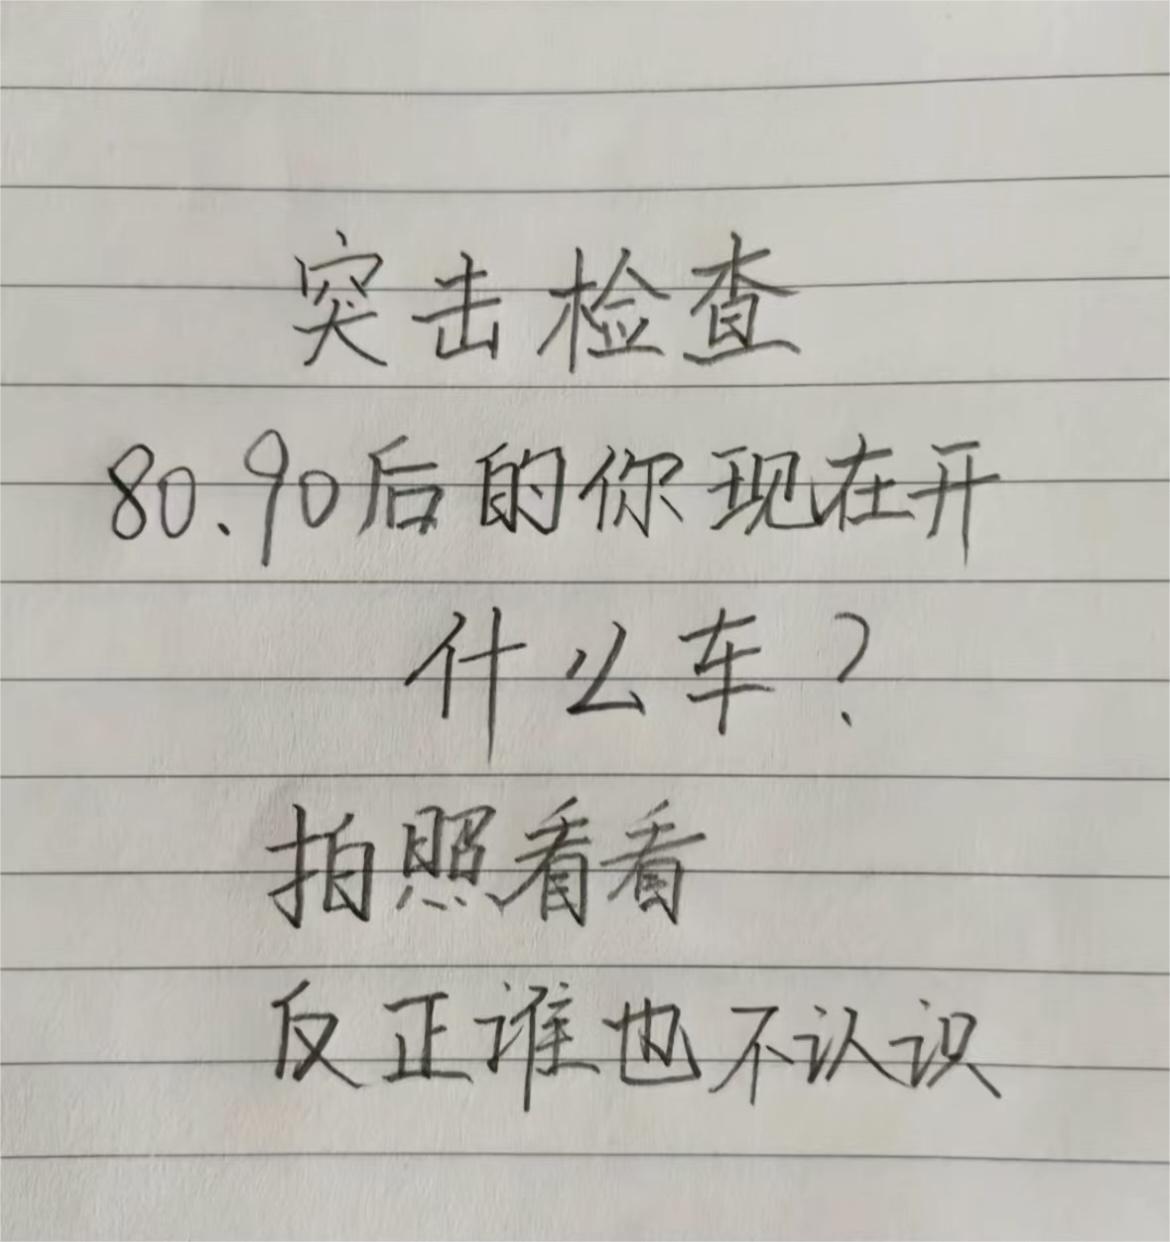 突击检查
80.90后的你现在开
什么车?
拍照看看
反正谁也不认识